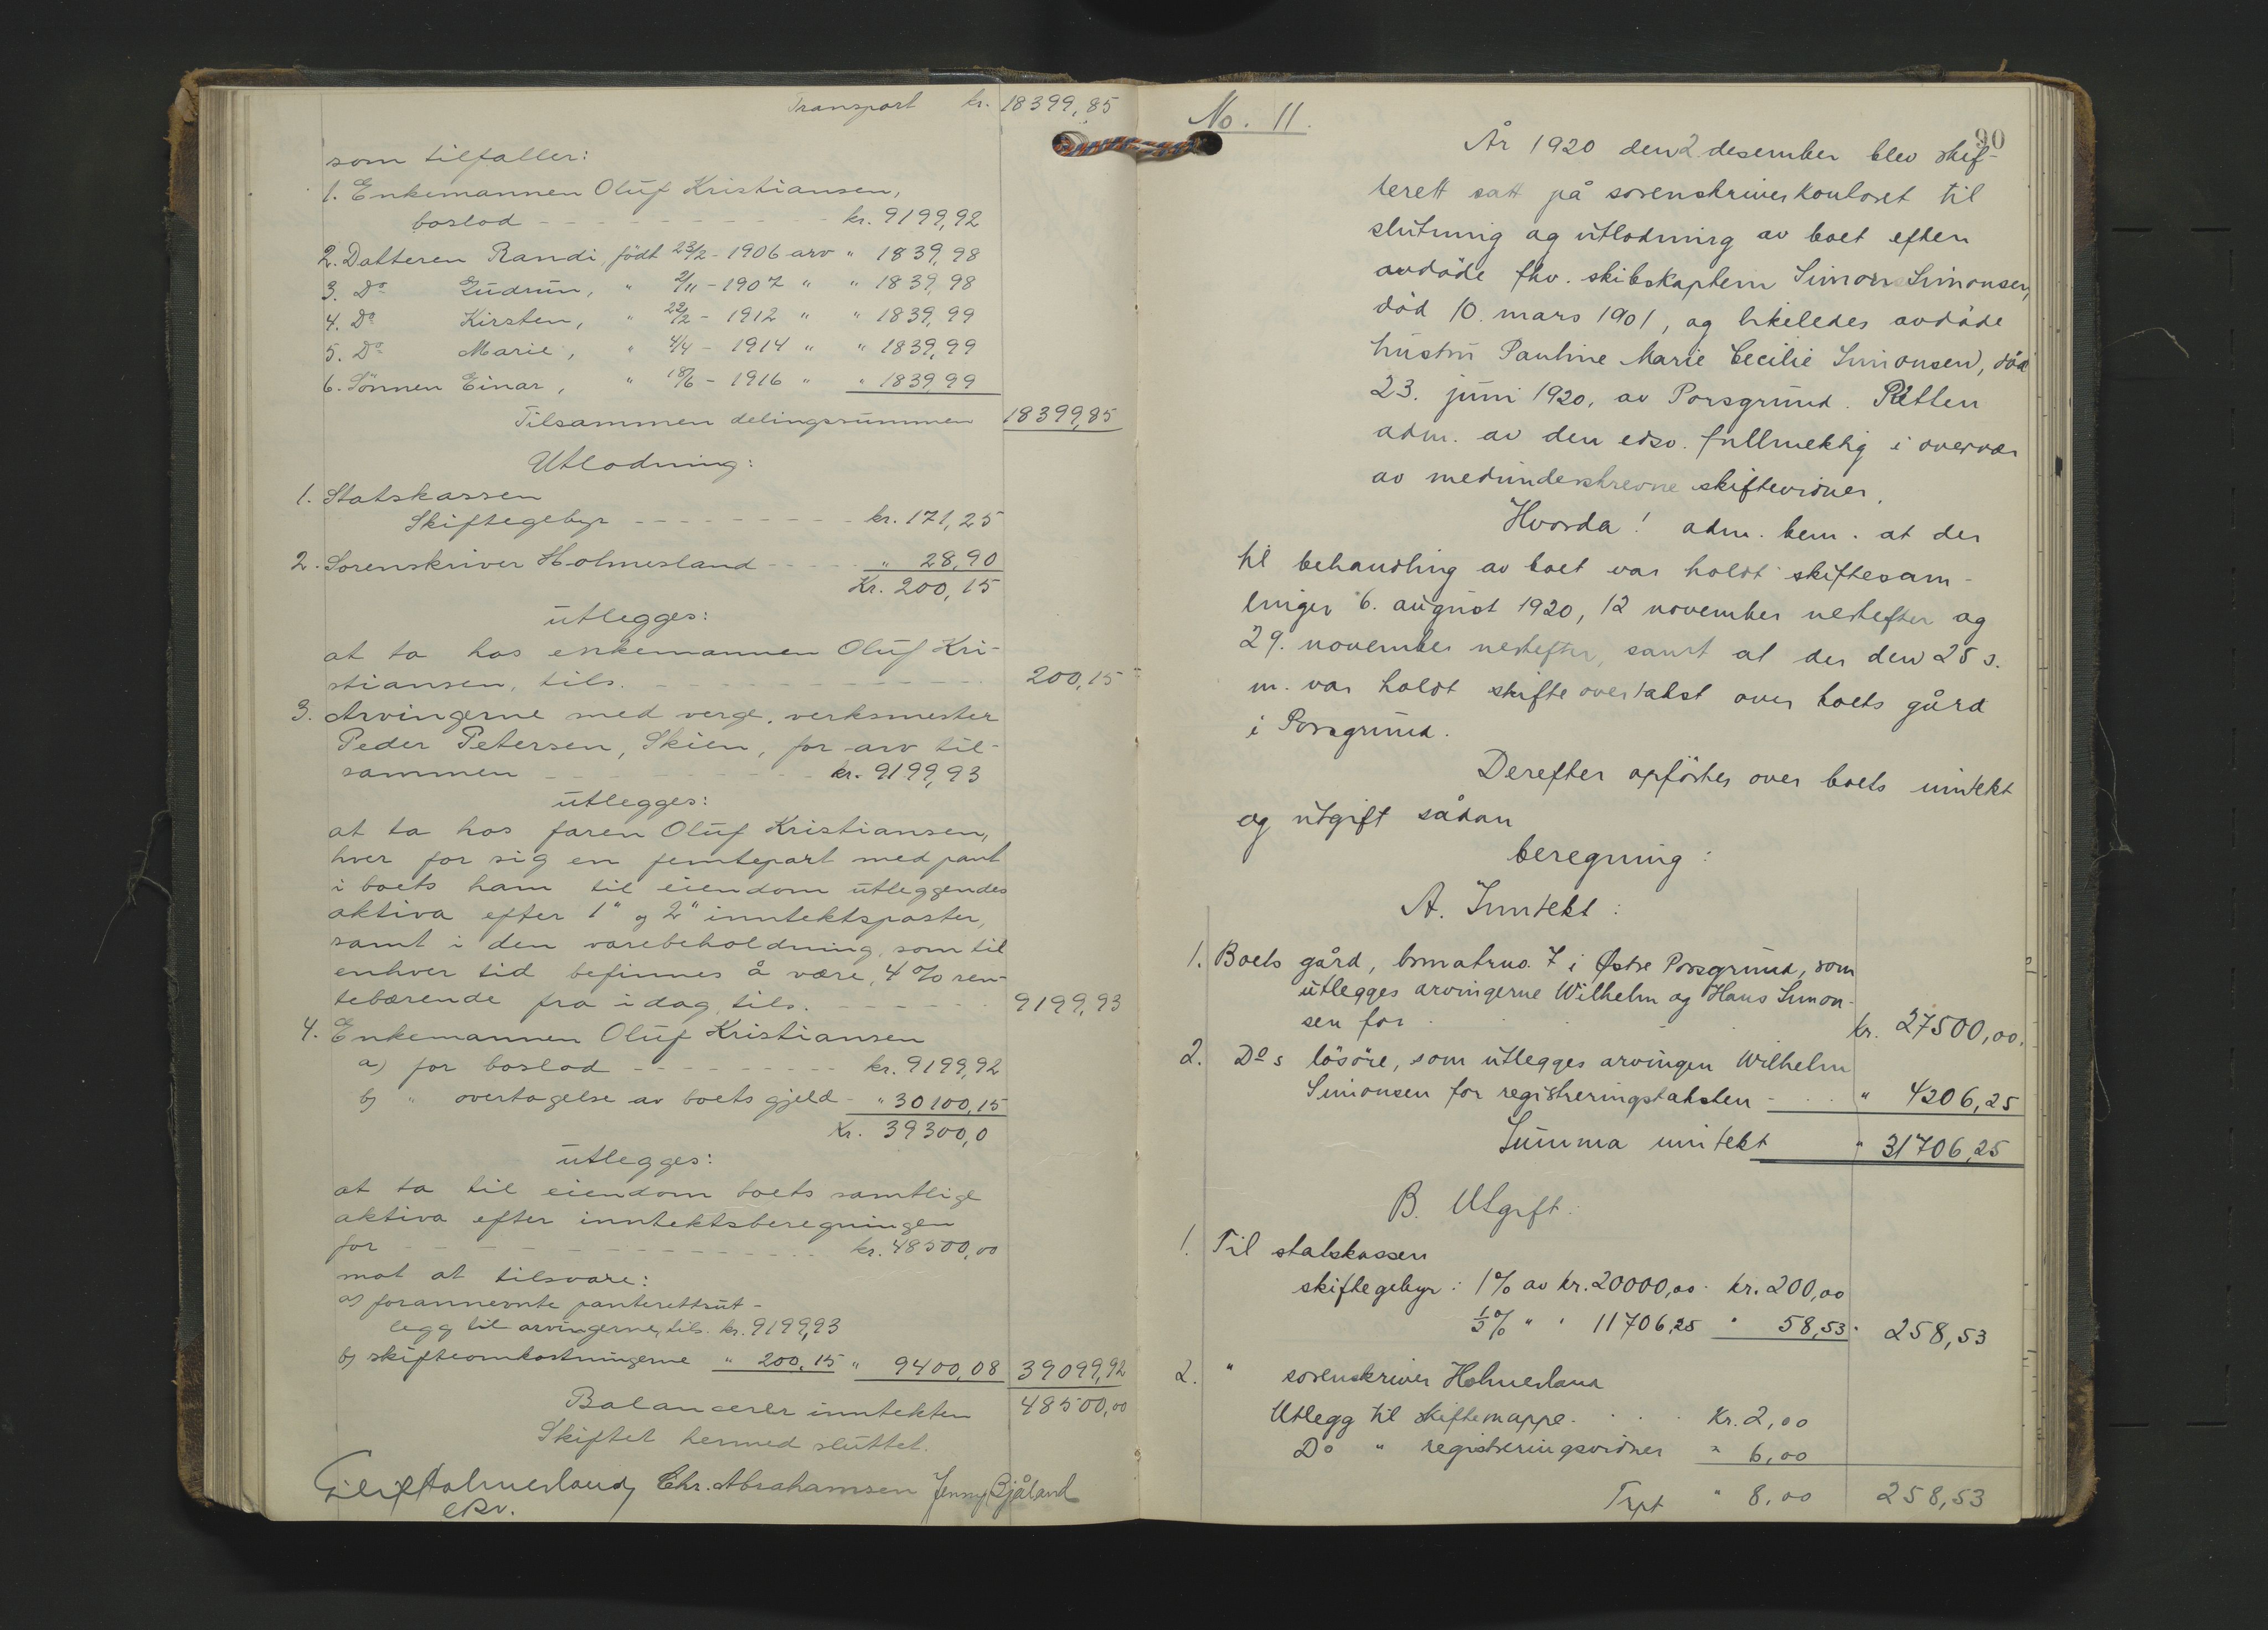 Transport kr. 18399,85
som tilfaller:
1. Enkemannen Oluf Kristiansen,
boslod - - - - - kr. 9199,92
2. Datteren Randi, født 23/2 - 1906 arv " 1839,98
3. Do Gudrun, " 2/11 - 1907 " " 1839,98
4. Do Kirsten, " 22/2 - 1912 " " 1839,99
5. Do Marie, " 4/4 - 1914 " " 1839,99
6. Sönnen Einar, " 18/6 - 1916 " " 1839,99
Tilsammen delingssummen 18399,85
Utlodning:
1. Statskassen
Skiftegebyr - - - - - kr. 171,25
2. Sorenskriver Holmesland - - - " 28,90
Kr. 200,15
utlegges:
at ta hos enkemannen Oluf Kri-
stiansen, tils. - - - - - 200,15
3. Arvingerne med verge, verksmester
Peder Petersen, Skien, for arv til-
sammen - - - - - kr. 9199,93
utlegges:
at ta hos faren Oluf Kristiansen,
hver for sig en femtepart med pant
i boets ham til eiendom utleggendes
aktiva efter 1" og 2" inntektsposter,
samt i den varebeholdning, som til
enhver tid befinnes å være, 4 % ren-
tebærende fra idag, tils. - - - 9199,93
4. Enkemannen Oluf Kristiansen
a) for boslod - - - - - kr. 9199,92
b) " overtagelse av boets gjeld - " 30100,15
Kr. 39300,0
utlegges:
at ta til eiendom boets samtlige
aktiva efter inntektsberegningen
for - - - - - kr. 48500,00
mot at tilsvare:
a) forannevnte panterettsut-
legg til arvingerne, tils. kr. 9199,93
b) skifteomkostningerne " 200,15 " 9400,08 39099,92
Balancerer inntekten 48500,00
Skiftet hermed sluttet.
Holmesland Chr. Abrahamsen Jenny Bjåland
eksv.
No. 11.
90
År 1920 den 2 desember blev skif-
terett satt på sorenskriverkontoret til
slutning og utlodning av boet efter
avdöde fhv. skibskaptein Simon Simonsen,
död 10. mars 1901, og likeledes avdöde
hustru Pauline Marie Cecilie Simonsen, död
23. juni 1920, av Porsgrund. Retten
adm. av den edsv. fullmektig i overvær
av medunderskrevne skiftevidner.
Hvorda! adm. bem. at der
til behandling av boet var holdt skiftesam-
linger 6. august 1920, 12 november nestefter og
29. november nestefter, samt at der den 25 s.
m. var holdt skifteovertakst over boets gård
i Porsgrund.
Derefter opförtes over boets inntekt
og utgift sådan
beregning:
A. Inntekt:
1. Boets gård, bmatrno. 7 i Østre Porsgrund, som
utlegges arvingerne Wilhelm og Hans Simon-
sen for . . . kr. 27500,00.
2. Do s lösöre, som utlegges arvingen Wilhelm
Simonsen for registreringstaksten - . . " 4206,25
Summa inntekt " 31706,25
B. Utgift:
1. Til statskassen
skiftegebyr: 1 % av kr. 20000,00 kr. 200,00
1/2 % " " 11706,25 " 58,53 258,53
2. " sorenskriver Holmesland
Utlegg til skiftemappe . . . Kr. 2,00
Do " registreringsvidner " 6,00
Trpt " 8,00 258,53